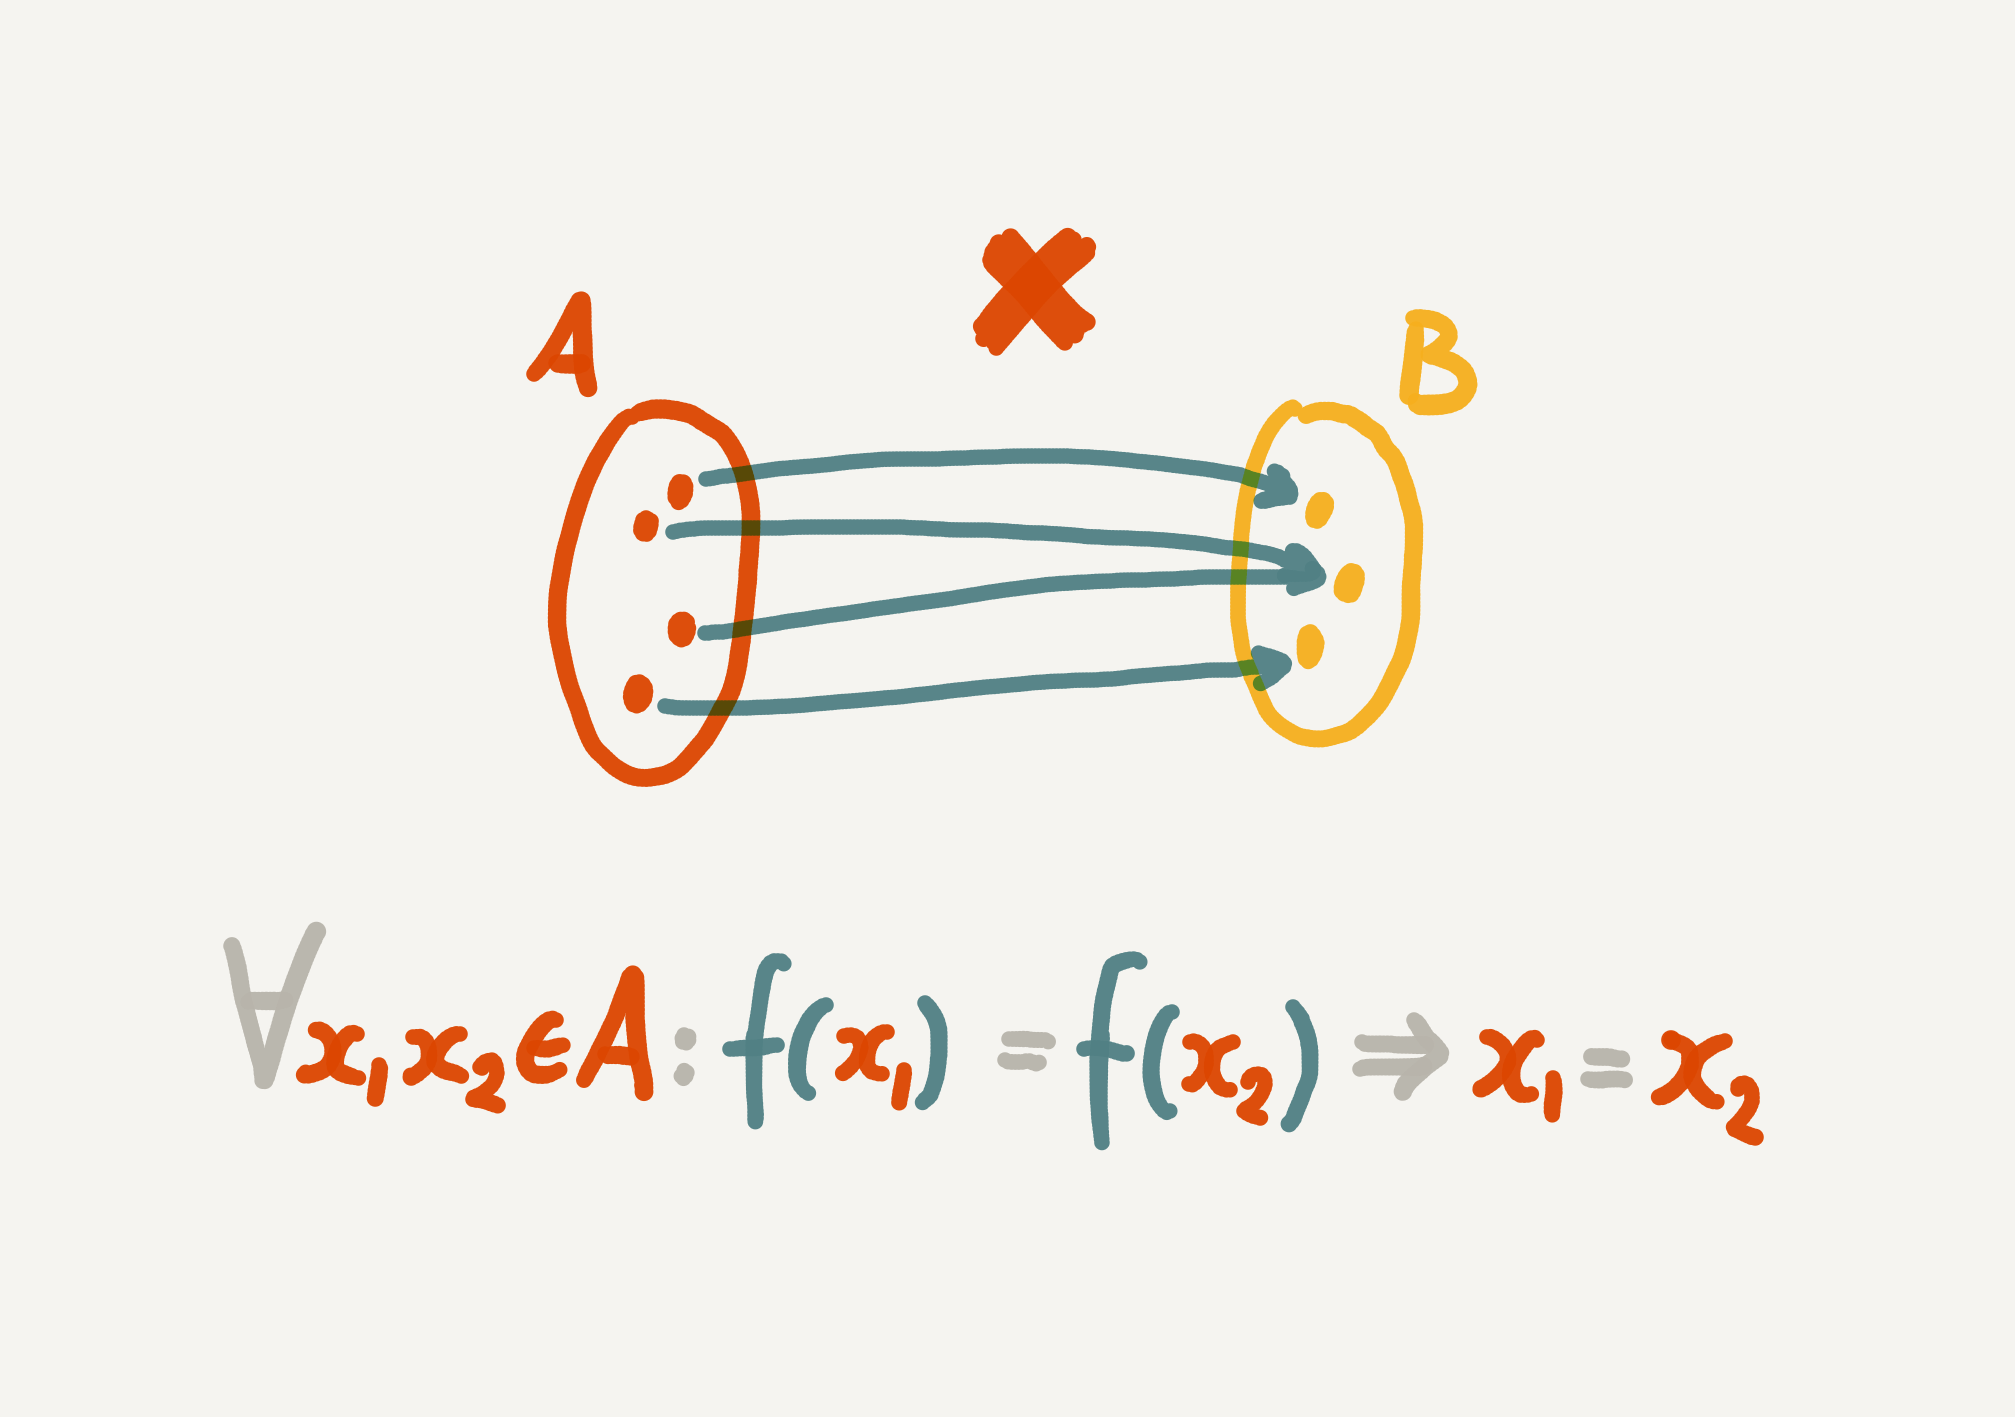 A B
∀x₁x₂∈A : f(x₁) = f(x₂) ⇒ x₁ = x₂